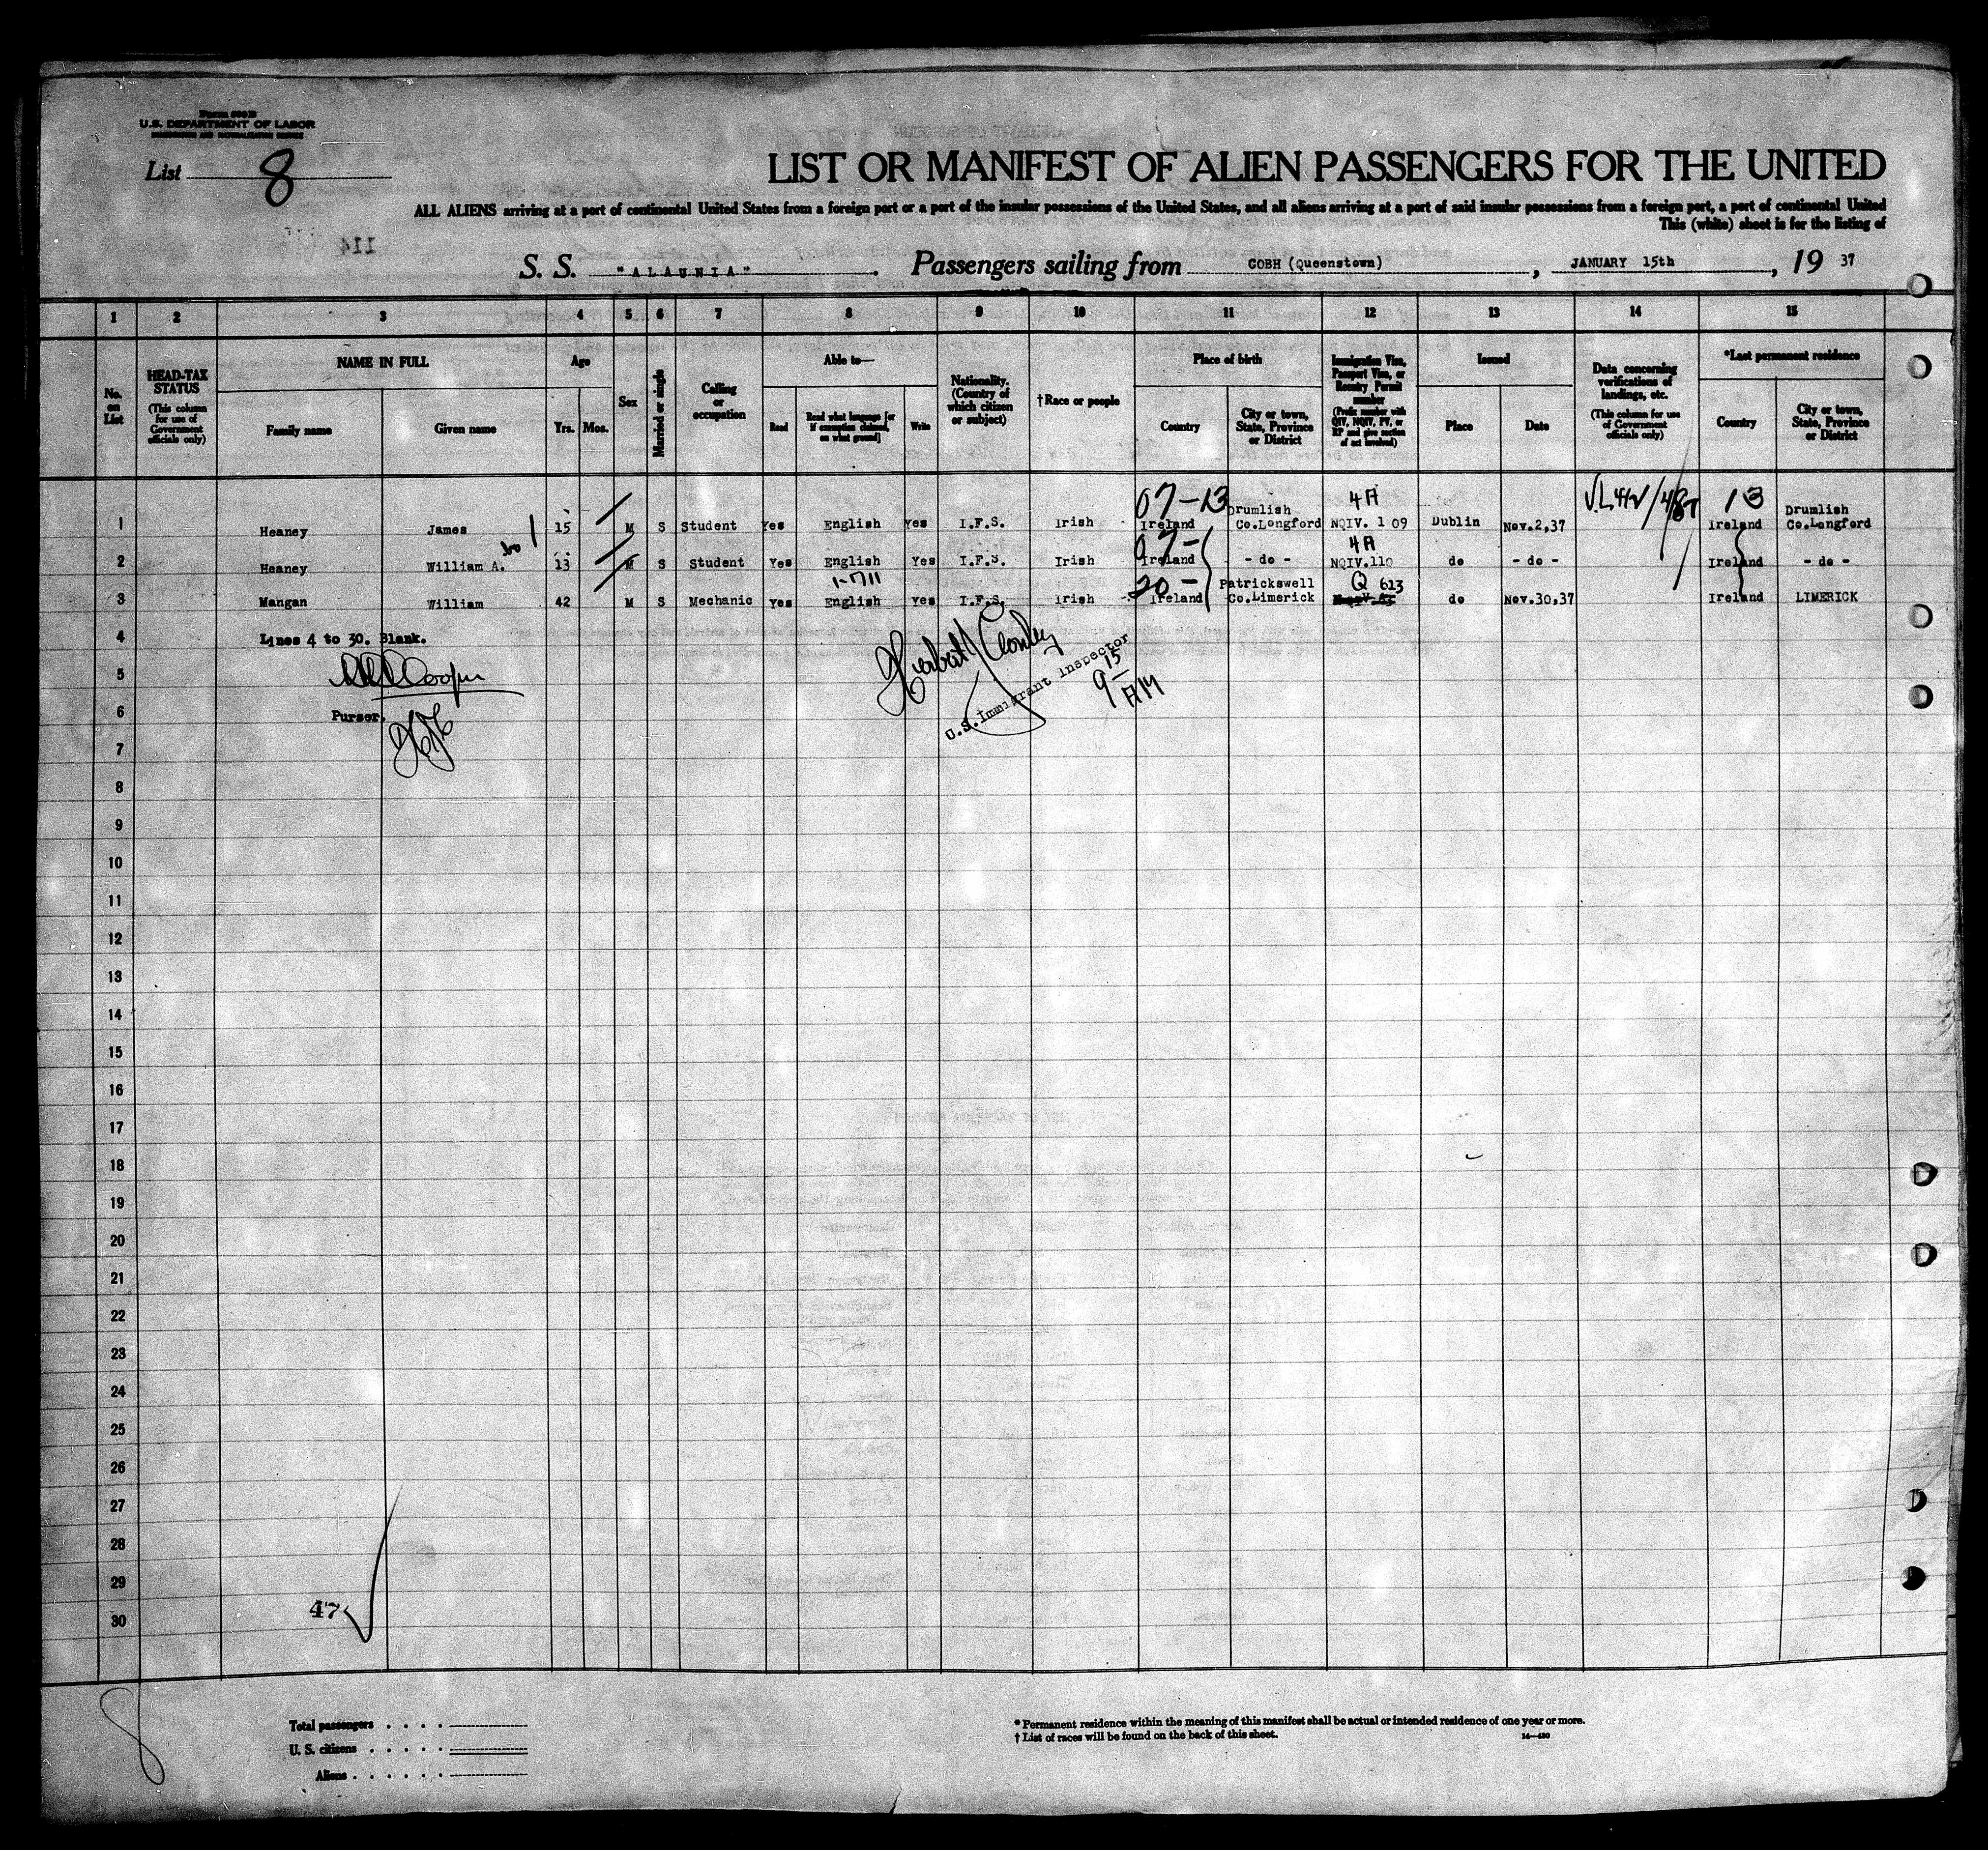 Form 500 B
U.S. DEPARTMENT OF LABOR
IMMIGRATION AND NATURALIZATION SERVICE
List 8
LIST OR MANIFEST OF ALIEN PASSENGERS FOR THE UNITED
ALL ALIENS arriving at a port of continental United States from a foreign port or a port of the insular possessions of the United States, and all aliens arriving at a port of said insular possessions from a foreign port, a port of continental United
This (white) sheet is for the listing of
114
S. S. "ALAUNIA". Passengers sailing from COBH (Queenstown), JANUARY 15th, 19 37
1 2 3 4 5 6 7 8 9 10 11 12 13 14 15
No. on List
HEAD-TAX STATUS (This column for use of Government officials only)
NAME IN FULL
Family name Given name
Age
Yrs. Mos.
Sex
Married or single
Calling or occupation
Able to—
Read Read what language [or if exemption claimed, on what ground] Write
Nationality. (Country of which citizen or subject)
†Race or people
Place of birth
Country City or town, State, Province or District
Immigration Visa, Passport Visa, or Reentry Permit number (Prefix number with QIV, NQIV, PV, or RP and give section of act involved)
Issued
Place Date
Data concerning verifications of landings, etc. (This column for use of Government officials only)
*Last permanent residence
Country City or town, State, Province or District
07-13 4A 13
1 Heaney James 15 M S Student Yes English Yes I.F.S. Irish Ireland Drumlish Co.Longford NQIV. 109 Dublin Nov.2,37 Ireland Drumlish Co.Longford
07- 4A
2 Heaney William A. 13 M S Student Yes English Yes I.F.S. Irish Ireland - do - NQIV.110 do - do - Ireland - do -
1-711 20- Q 613
3 Mangan William 42 M S Mechanic Yes English Yes I.F.S. Irish Ireland Patrickswell Co.Limerick do Nov.30,37 Ireland LIMERICK
4 Lines 4 to 30. Blank.
5
6 Purser.
U.S. Immigrant Inspector
9 15 AM
7
8
9
10
11
12
13
14
15
16
17
18
19
20
21
22
23
24
25
26
27
28
29
30
47
Total passengers
U. S. citizens
Aliens
* Permanent residence within the meaning of this manifest shall be actual or intended residence of one year or more.
† List of races will be found on the back of this sheet.
8